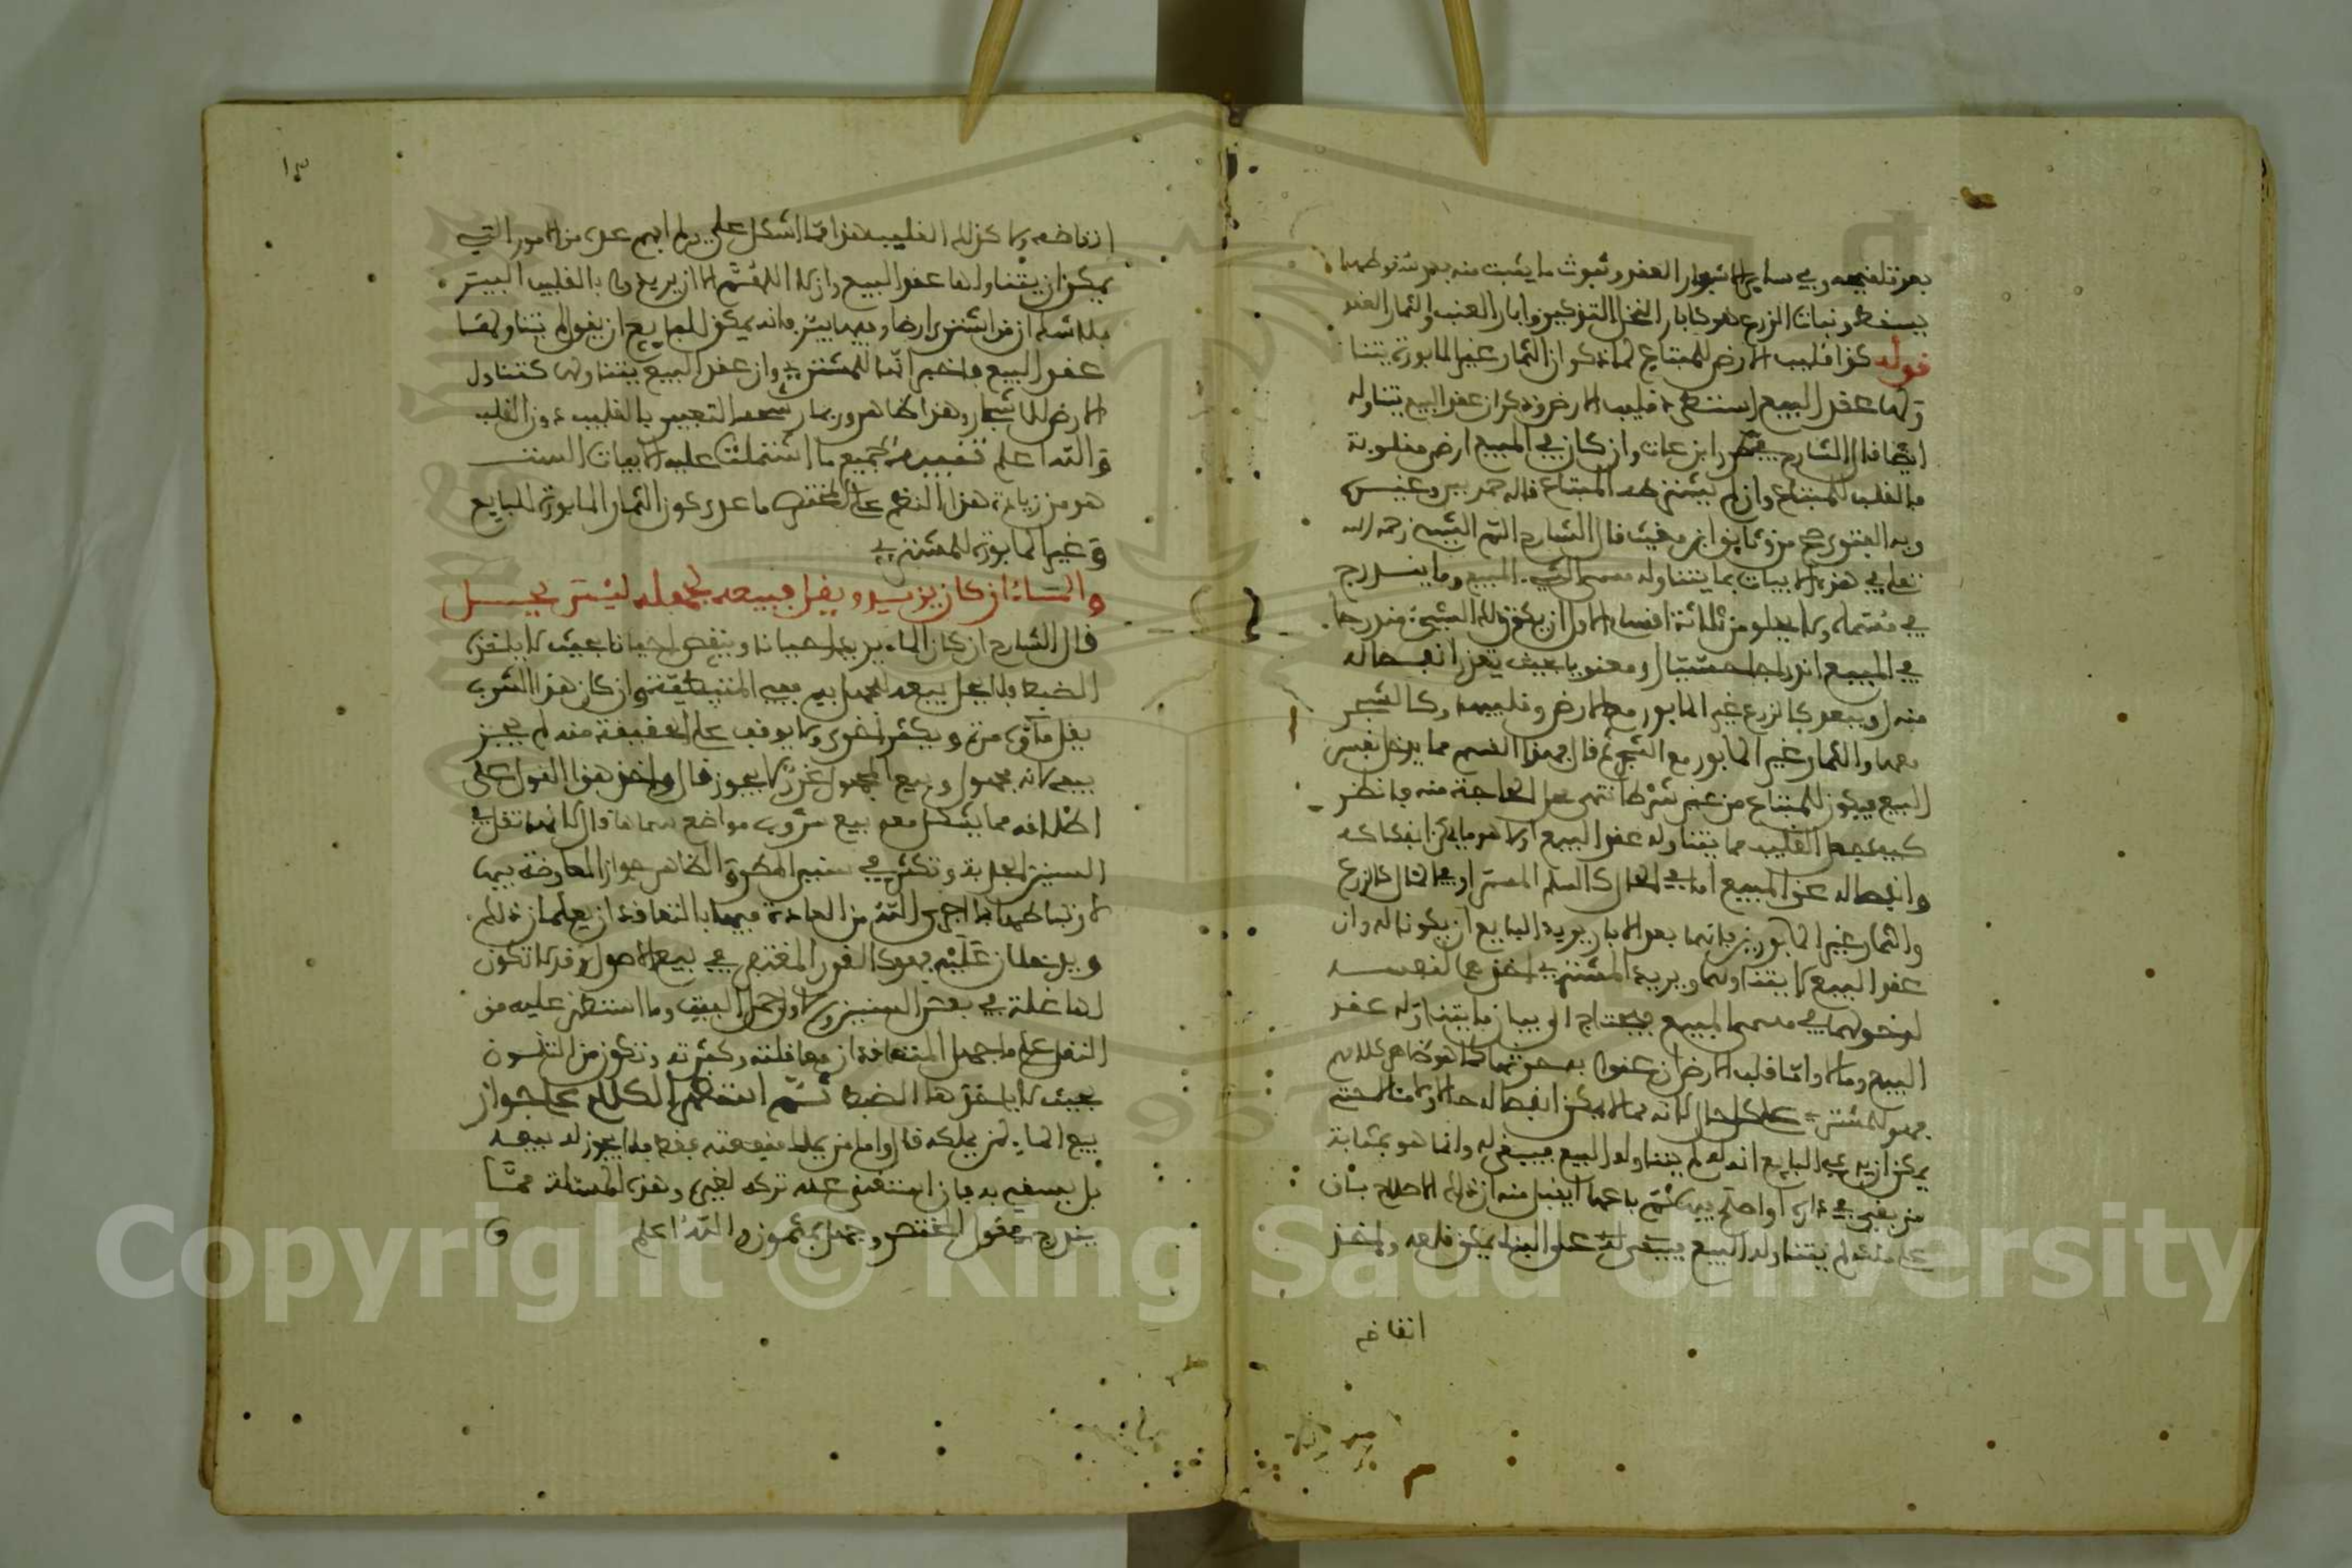 بعد تلقيحه وفي ساير الاشجار العقد وثبوت ما يثبت منه بعد سقوط ما
يسقط ونبات الزرع هو كابار النخل التذكير وابار العنب والثمار العقد
قوله كذا قليب الارض للمبتاع لما ذكر ان الثمار غير المابورة يتنا
ولها عقد البيع استطرد قليب الارض وذكر ان عقد البيع يتناوله
ايضا قال الشارح ابن عات وان كان في المبيع ارض مقلوبة
فالقلب للمبتاع وان لم يشترطه المبتاع قاله حمديس وغيره
وبه الفتوى من وثايق ابن مغيث قال الشارح الشيخ رحمه الله
في هذه الابيات بما يتناوله مسمى المبيع وما يندرج
في ولا يخلو من ثلاثة اقسام الاول ان يكون ذلك الشيء مندرجا
في المبيع اندراجا حسيا او معنويا بحيث يتعذر انفصاله
منه او يبعد كالزرع غير المابور مع الارض وقليبها وكالشجر
معها والثمار غير المابور مع الشجر ثم قال فهذا القسم مما يدخل بنفس
البيع فيكون للمبتاع من غير شرط انتهى محل الحاجة منه فانظر
كيف جعل القليب مما يتناوله عقد البيع اولا هو ما يتعذر انفكاكه
وانفصاله عن المبيع اما في الحال كالسلم المسمر او في المئال كالزرع
والثمار غير المابورين فانهما بعد الابار يريد البايع ان يكونا له وان
عقد البيع لا يتناولهما ويريد المشتري اخذهما لنفسه
لدخولهما في مسمى المبيع فيحتاج الى بيان ما يتناوله عقد
البيع وما لا واما قلب الارض ان عنوا به حرثها كما هو ظاهر كلامهم
فهو للمشتري على كل حال لانه مما لا يمكن انفصاله حالا ولا مئالا حتى
يمكن ان يدعي البايع انه له لم يتناوله البيع فيبقى له وانما هو بمثابة
من بنى في داره او اصلح فيها ثم باعها ايقبل منه ان ذلك الاصلاح باق
على ملكه لم يتناوله البيع فيبقى له على البناء يمكن قلعه ولاخذ
انقاضه
١٣
انقاضه ولا كذلك القليب هذا مما اشكل علي ولم ابهم عده من الامور التي
يمكن ان يتناولها عقد البيع وان لا اللهم الا ان يريدوا بالقليب البير
فلا شك ان من اشترى ارضا وفيها بير فانه يمكن للبايع ان يقول لم يتناولها
عقد البيع فاخبر انها للمشتري وان عقد البيع يتناولها كتناول
الارض للاشجار وهذا ظاهر وربما رشحه التعبير بالقليب دون القلب
والله اعلم تنبيه جميع ما اشتملت عليه الابيات الست
هو من زيادة هذا النظم على المختصر ما عدى كون الثمار المابورة للبايع
وغير المابورة للمشتري
والماء ان كان يزيد ويقل فبيعه لجهله ليس يحل
قال الشارح ان كان الماء يزيد احيانا وينقص احيانا بحيث لا ياخذه
الضبط فلا يحل بيعه للجهل به ففي المتيطية وان كان هذا الشرب
يقل ماؤه مرة ويكثر اخرى ولا يوقف على الحقيقة منه لم يجز
بيعه لانه مجهول وبيع المجهول غرر لا يجوز قال واخذ هذا القول على
اطلاقه مما يشكل معه بيع شروب مواضع سماها قال لانها تقل في
السنين الجدبة وتكثر في سنين المطر والظاهر جواز المعاوضة فيها
لارتباطها بما اجرى الله من العادة فيها بالتعاقد ان يعلمان ذلك
ويدخلان عليه فهو كالقدر المغتفر في بيع الاصول وقد لا تكون
لها غلة في بعض السنين والاولى حمل البيت وما استظهر عليه من
النقل على ما جهل المتعاقدان معا قلته وكثرته وتكون من التلون
بحيث لا ياخذها الضبط ثم استظهر الكلام على جواز
بيع الماء لمن يملكه قال واما من يملك منفعته فقط فلا يجوز له بيعه
بل يسقي به فان استغنى عنه تركه لغيره وهذه المسئلة مما
يندرج في قول المختصر وجهل بمثمون والله اعلم و
Copyright © King Saud University
1957